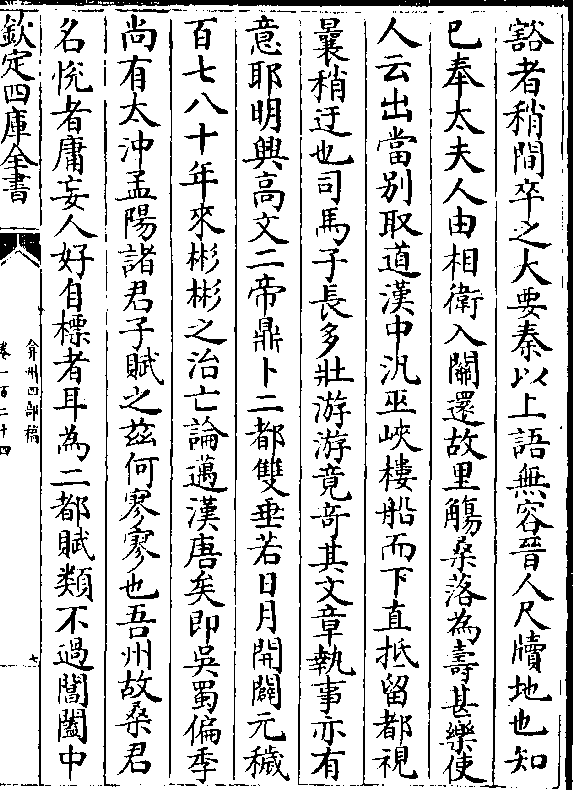 豁者稍間卒之大要秦以上語無容晉人尺牘地也知
已奉太夫人由相衛入關還故里觴桑落為壽甚樂使
人云出當别取道漢中汎巫峽樓船而下直抵留都視
曩稍迂也司馬子長多壯游游竟竒其文章執事亦有
意耶明興高文二帝鼎卜二都雙垂若日月開闢元穢
百七八十年來彬彬之治亡論邁漢唐矣即吳蜀偏季
尚有太沖孟陽諸君子賦之茲何寥寥也吾州故桑君
名悅者庸妄人好自標者耳為二都賦類不過闤闠中
欽定四庫全書
弇州四部稿
卷一百二十四
七